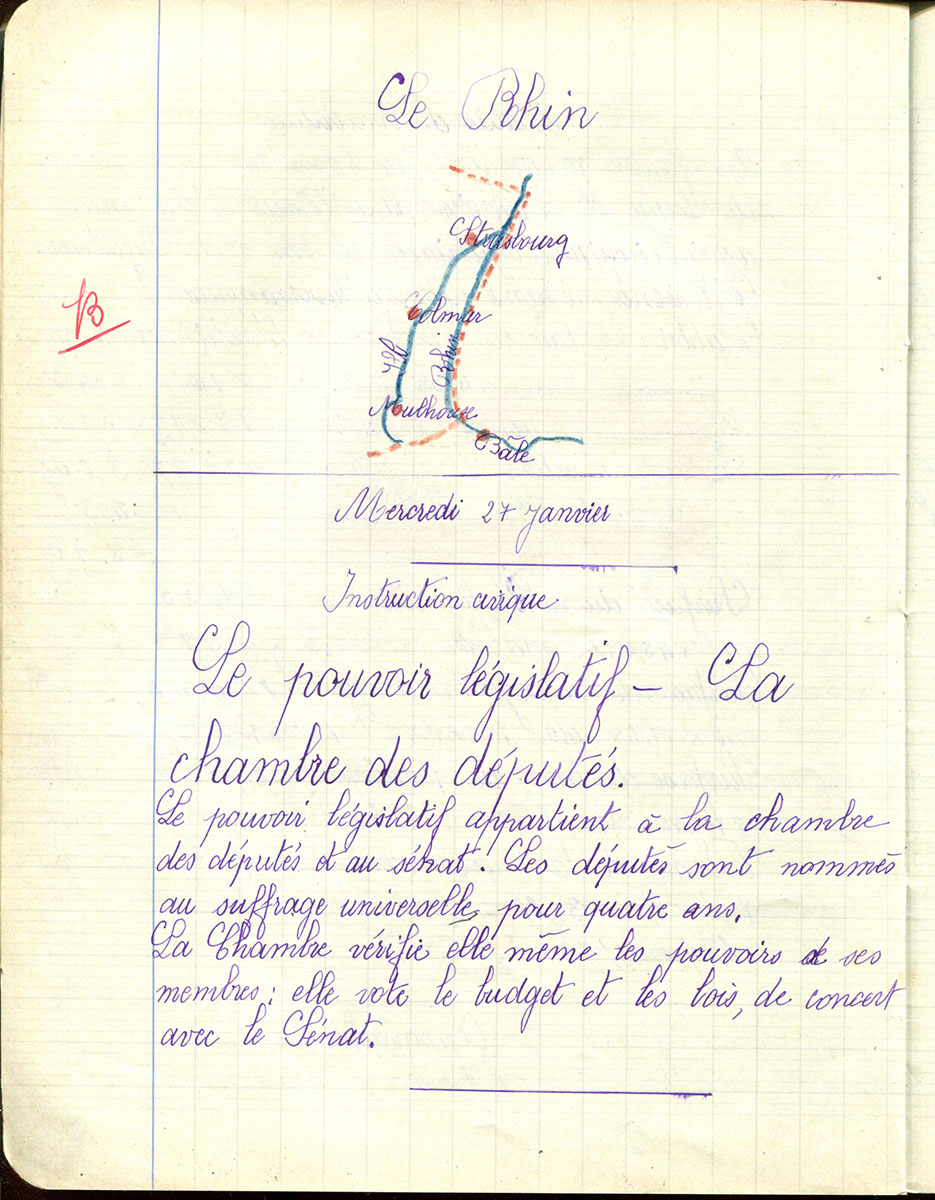 Le Rhin
Strasbourg
B
Colmar
Ill
Rhin
Mulhouse
Bâle
Mercredi 27 Janvier
Instruction civique
Le pouvoir législatif – La
chambre des députés.
Le pouvoir législatif appartient à la chambre
des députés et au sénat. Les députés sont nommés
au suffrage universelle, pour quatre ans.
La Chambre vérifie elle même les pouvoirs de ses
membres : elle vote le budget et les lois, de concert
avec le Sénat.